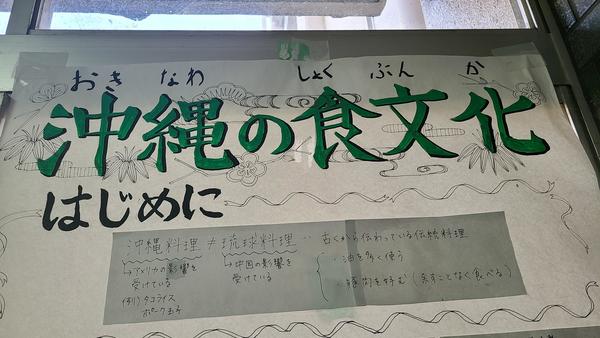 おき なわ しょく ぶん か
沖縄の食文化
はじめに
沖縄料理 ≠ 琉球料理… 古くから伝わっている伝統料理
→アメリカの影響を →中国の影響を ・油を多く使う
受けている 受けている ・豚肉を好む(余すことなく食べる)
(例)タコライス
ポーク玉子